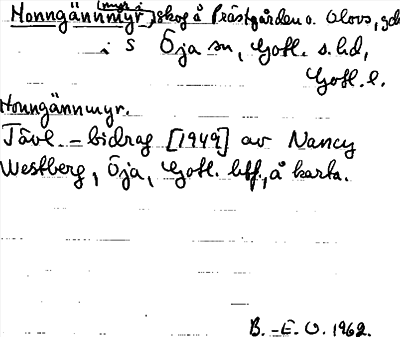 Honngännmyr, skog å Prästgården o. Olovs, gdr
i S Öja sn, Gotl. s. hd,
Gotl. l.
Honngännmyr.
Tävl.-bidrag [1949] av Nancy
Westberg, Öja, Gotl. htf., å karta.
B.-E. O. 1962.